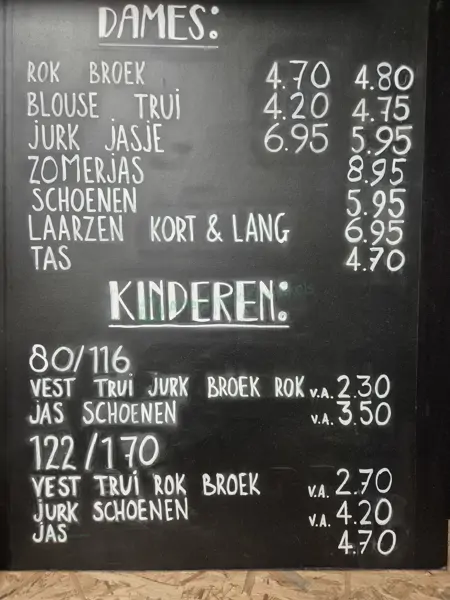 DAMES:
ROK BROEK 4.70 4.80
BLOUSE TRUI 4.20 4.75
JURK JASJE 6.95 5.95
ZOMERJAS 8.95
SCHOENEN 5.95
LAARZEN KORT & LANG 6.95
TAS 4.70
KINDEREN:
80/116
VEST TRUI JURK BROEK ROK V.A. 2.30
JAS SCHOENEN V.A. 3.50
122/170
VEST TRUI ROK BROEK V.A. 2.70
JURK SCHOENEN V.A. 4.20
JAS 4.70